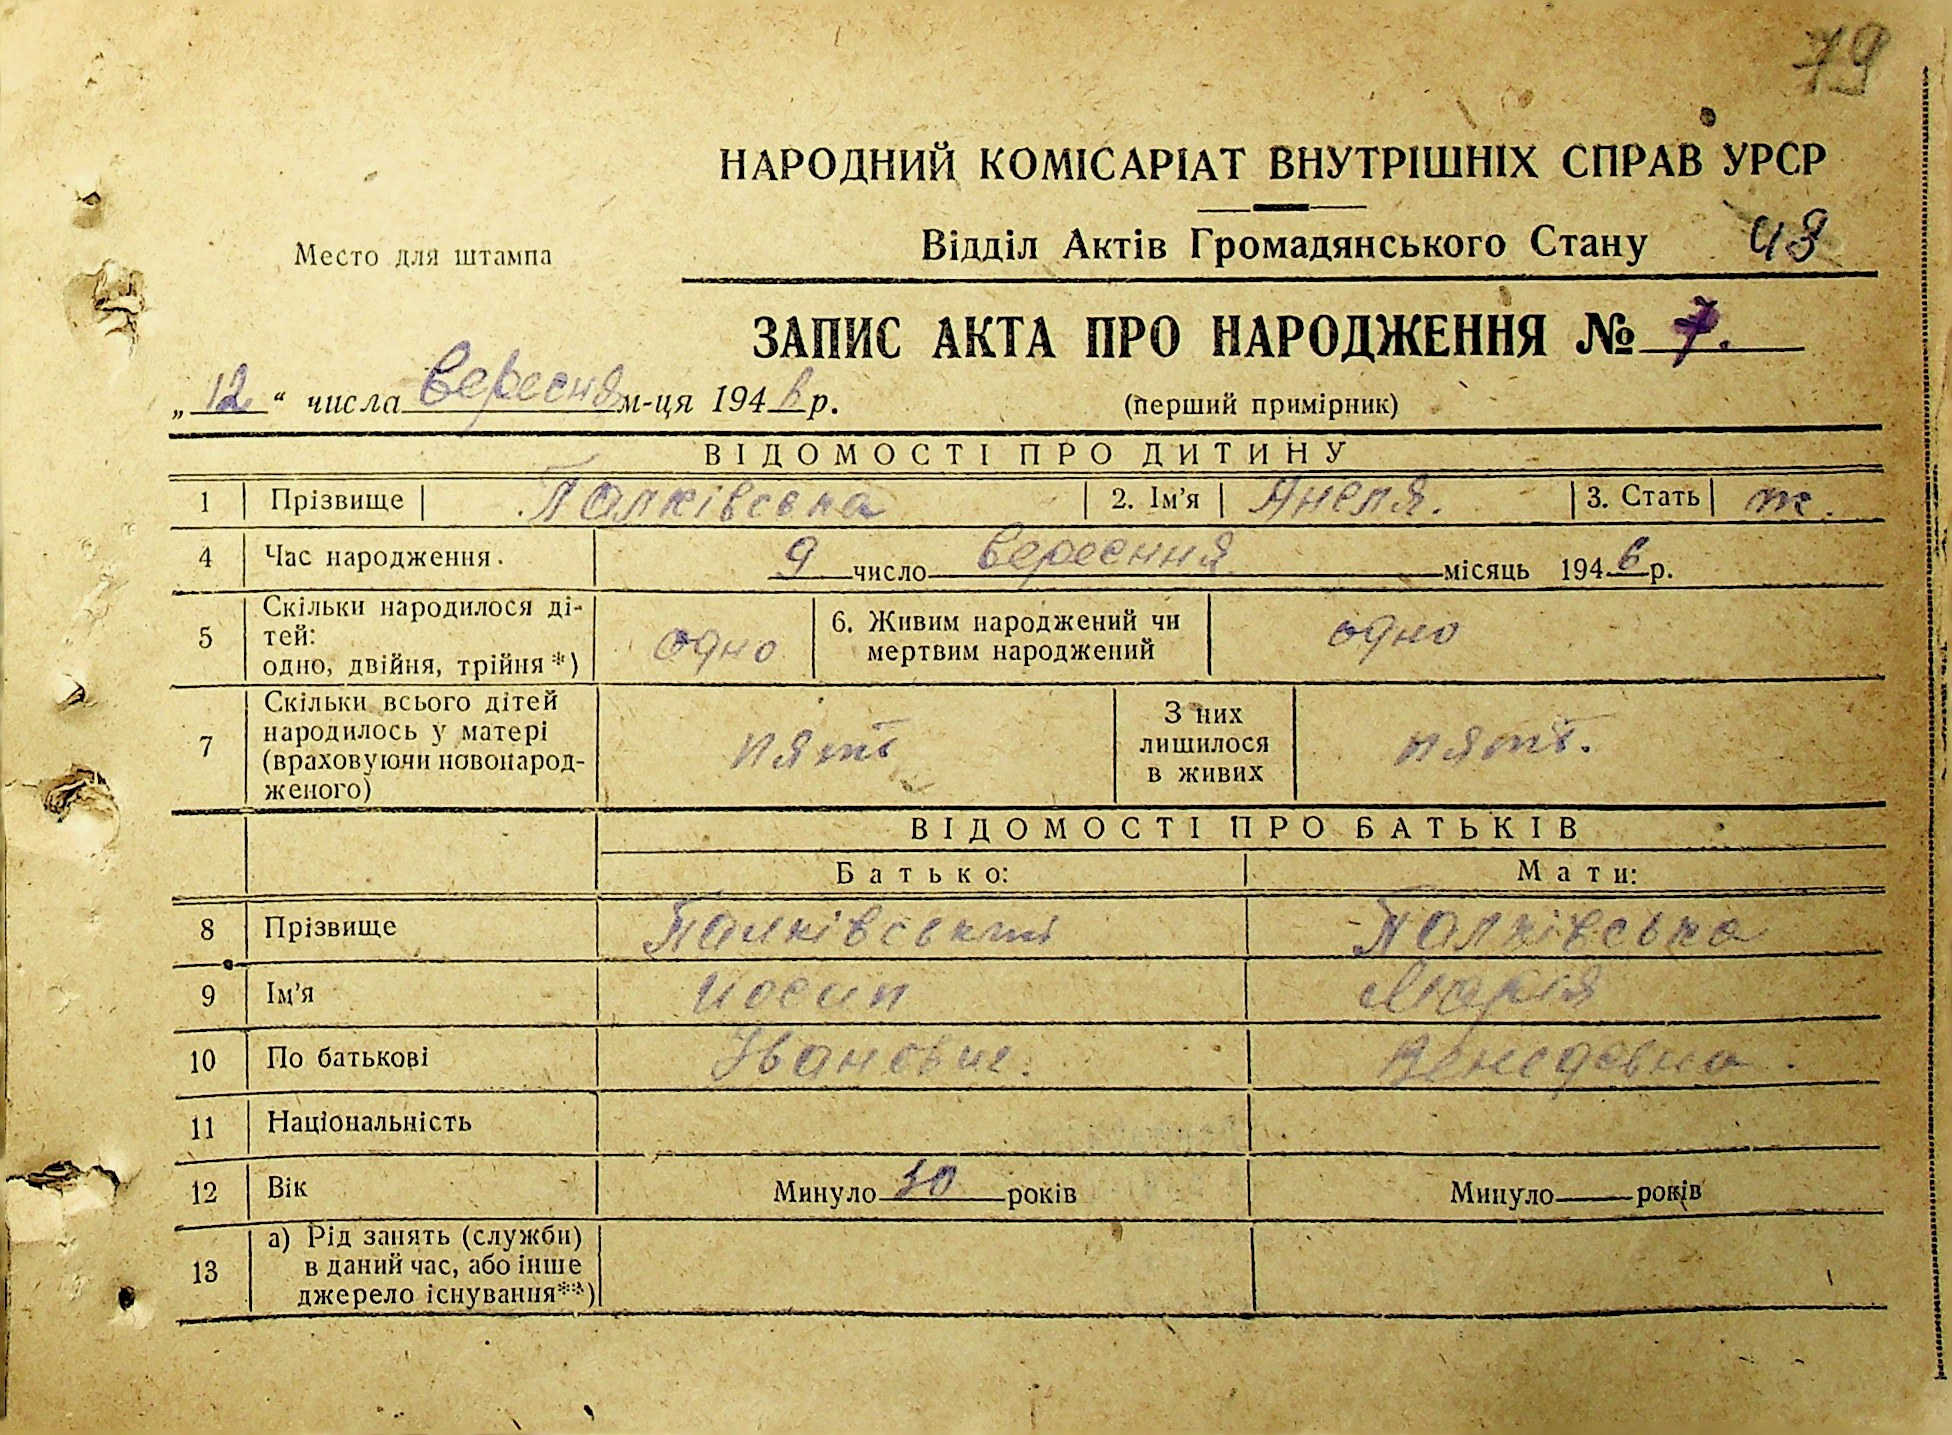 79
НАРОДНИЙ КОМІСАРІАТ ВНУТРІШНІХ СПРАВ УРСР
Место для штампа
Відділ Актів Громадянського Стану 48
ЗАПИС АКТА ПРО НАРОДЖЕННЯ № 7.
„12“ числа вересня м-ця 1946 р. (перший примірник)
ВІДОМОСТІ ПРО ДИТИНУ
1 Прізвище Палківська 2. Ім'я Анеля. 3. Стать ж.
4 Час народження. 9 число вересння місяць 1946 р.
5 Скільки народилося ді-
тей:
одно, двійня, трійня*) одно 6. Живим народжений чи
мертвим народжений одно
7 Скільки всього дітей
народилось у матері
(враховуючи новонарод-
женого) пять З них
лишилося
в живих пять.
ВІДОМОСТІ ПРО БАТЬКІВ
Батько: Мати:
8 Прізвище Палківський Палківська
9 Ім'я Йосип Марія
10 По батькові Іванович.
11 Національність
12 Вік Минуло 30 років Минуло років
13 а) Рід занять (служби)
в даний час, або інше
джерело існування**)